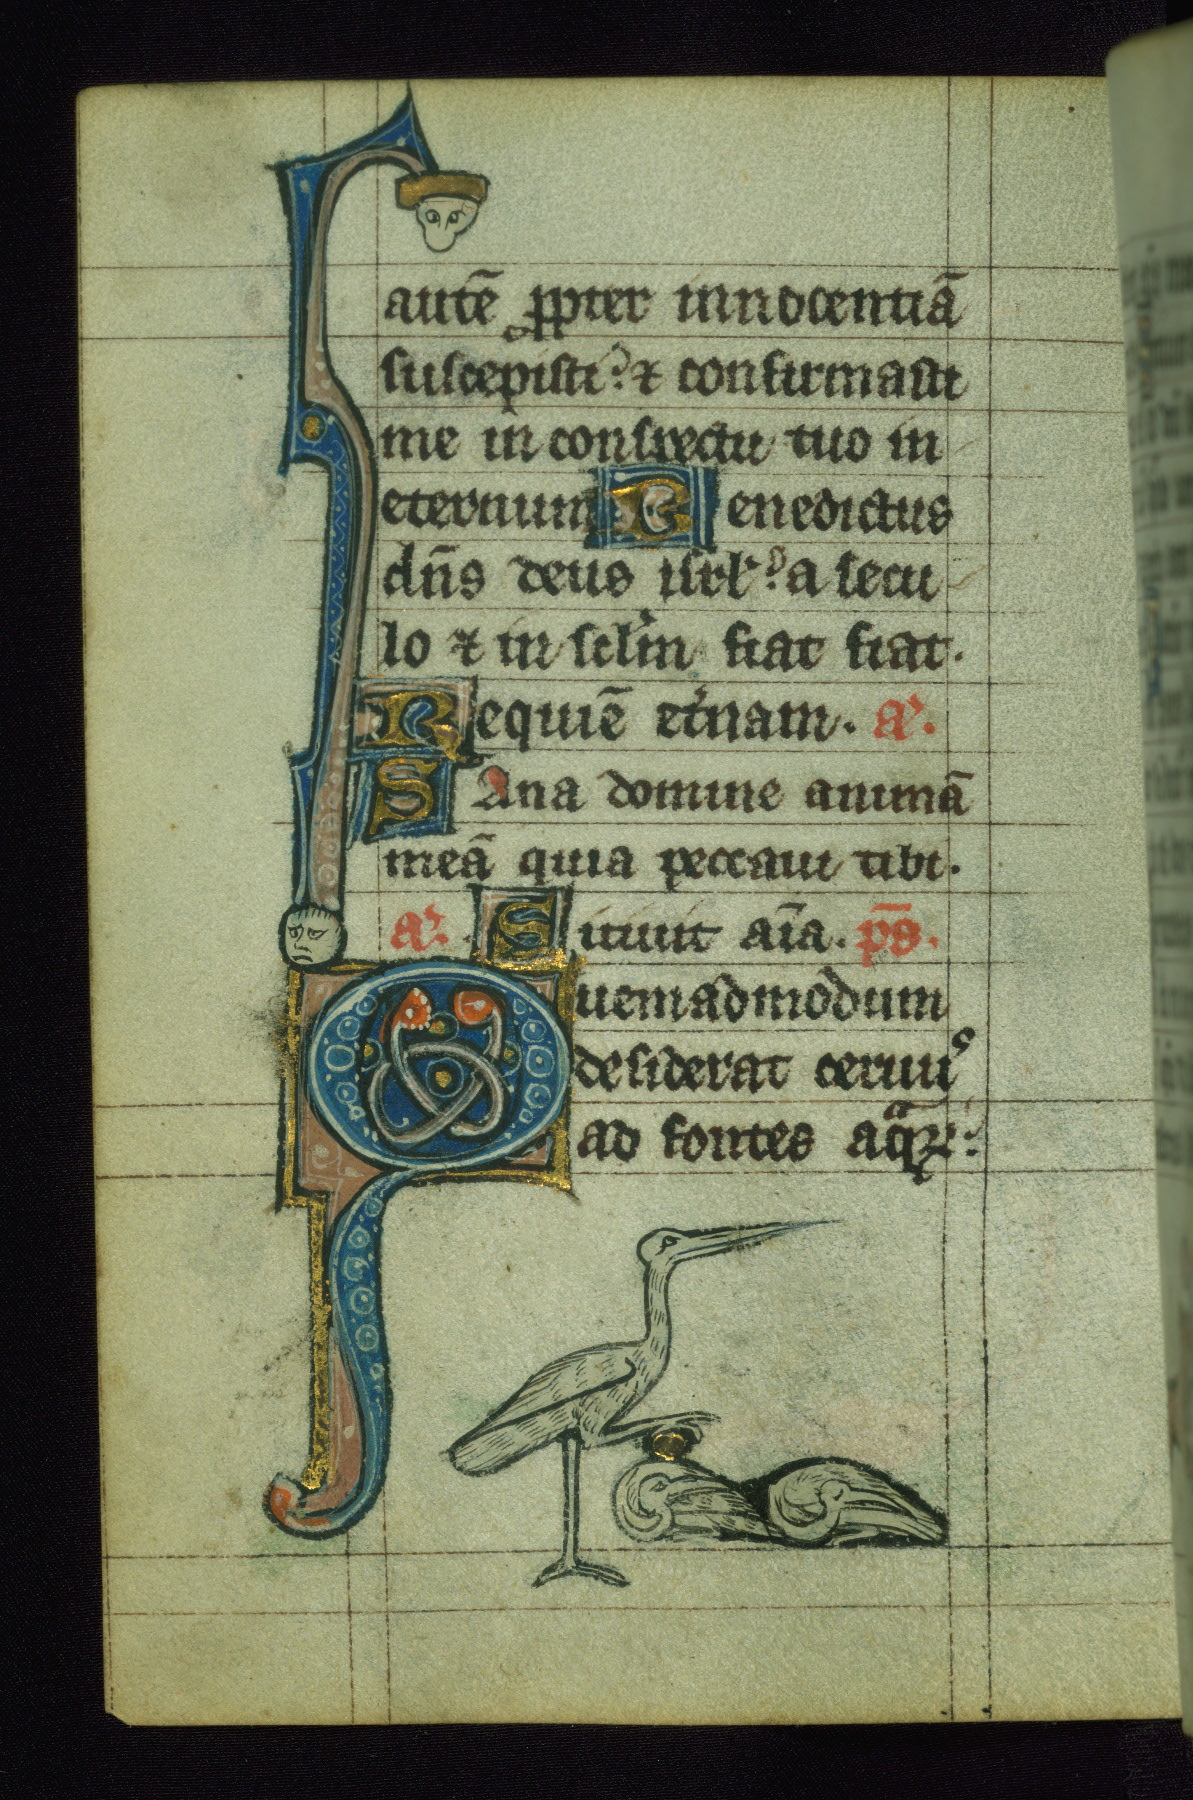 autē ꝓpter innocentiā
suscepisti? ⁊ confirmasti
me in conspectu tuo in
eternum Benedictus
dn̄s deus isrl'? a secu
lo ⁊ in sclm̄ fiat fiat.
Requiē et'nam. a'.
SAna domine animā
meā quia peccaui tibi.
a'. Sitiuit aīa. ps̄.
Quemadmodum
desiderat ceruuꝰ
ad fontes aqᷓꝝ: